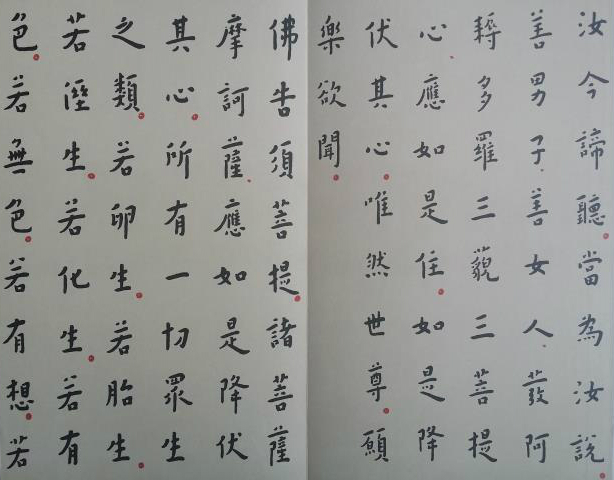 汝今諦聽當為汝說
善男子善女人發阿
耨多羅三藐三菩提
心應如是住如是降
伏其心唯然世尊願
樂欲聞
佛告須菩提諸菩薩
摩訶薩應如是降伏
其心所有一切眾生
之類若卵生若胎生
若溼生若化生若有
色若無色若有想若